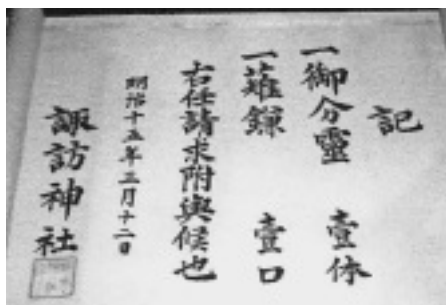 記
一御分靈 壹体
一薙鎌 壹口
右任請求附與候也
明治十五年三月十二日
諏訪神社